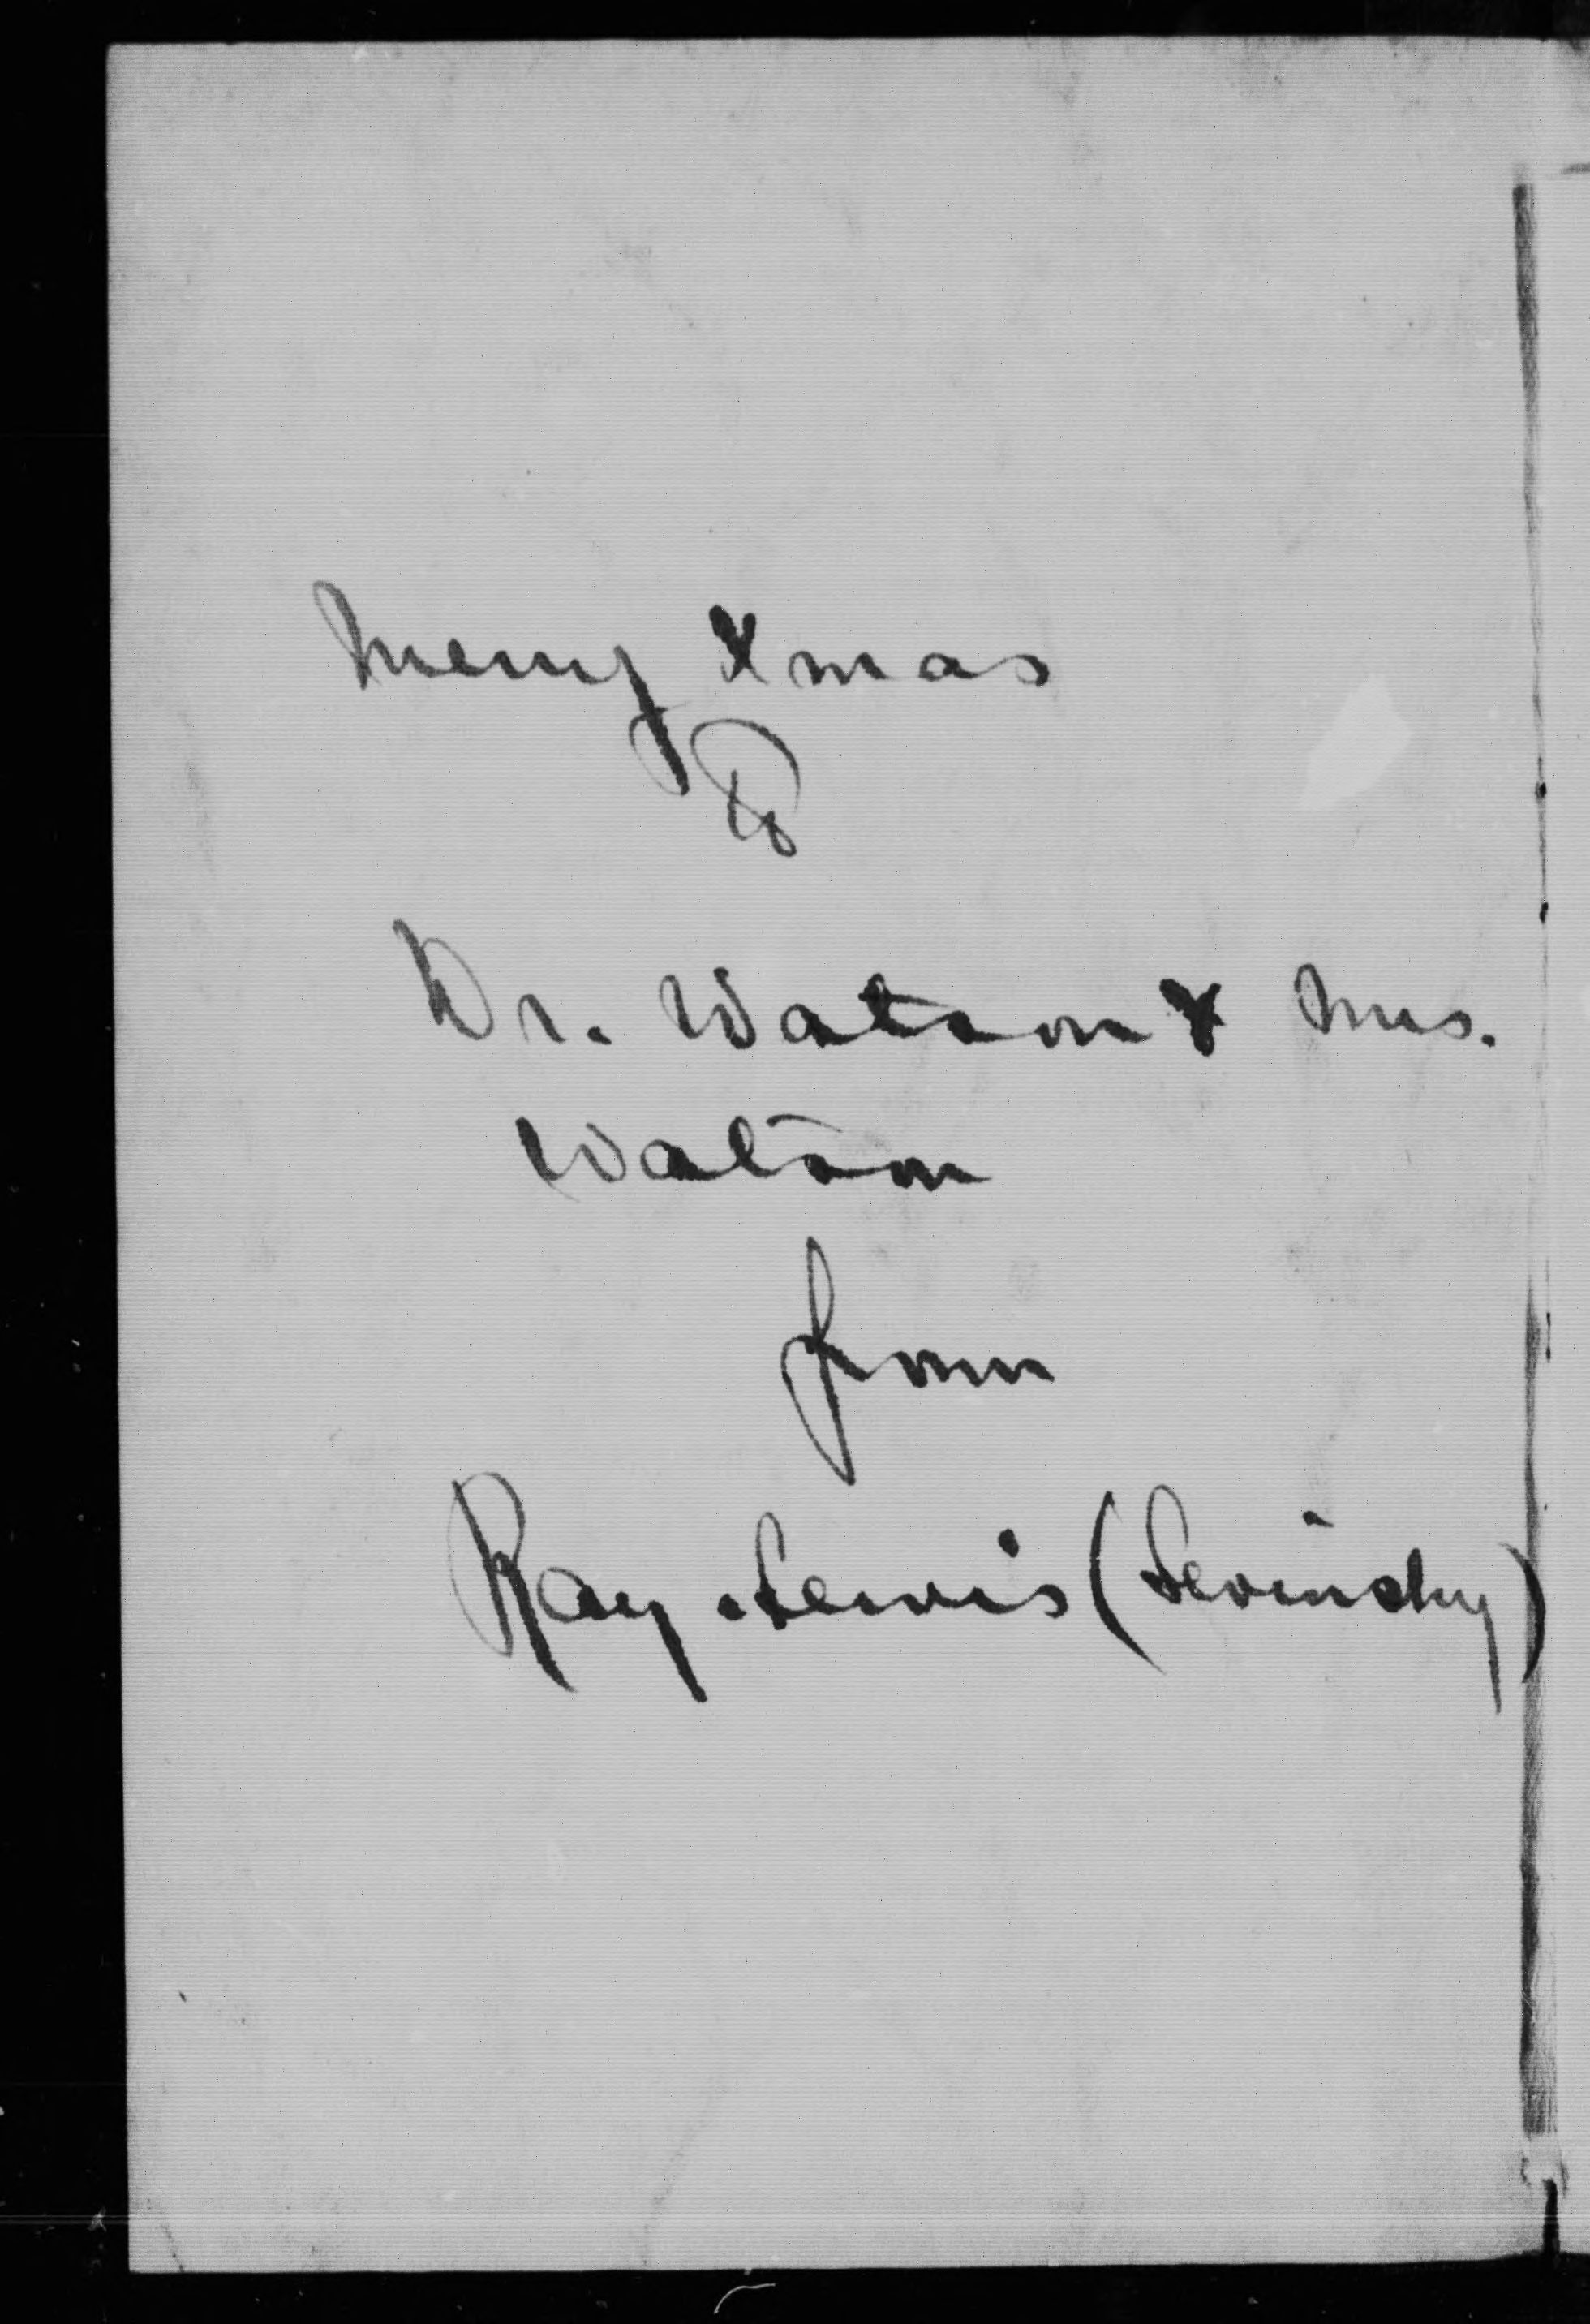 Merry Xmas
To
Dr. Watson & Mrs.
Watson
from
Ray Lewis (Levinsky)